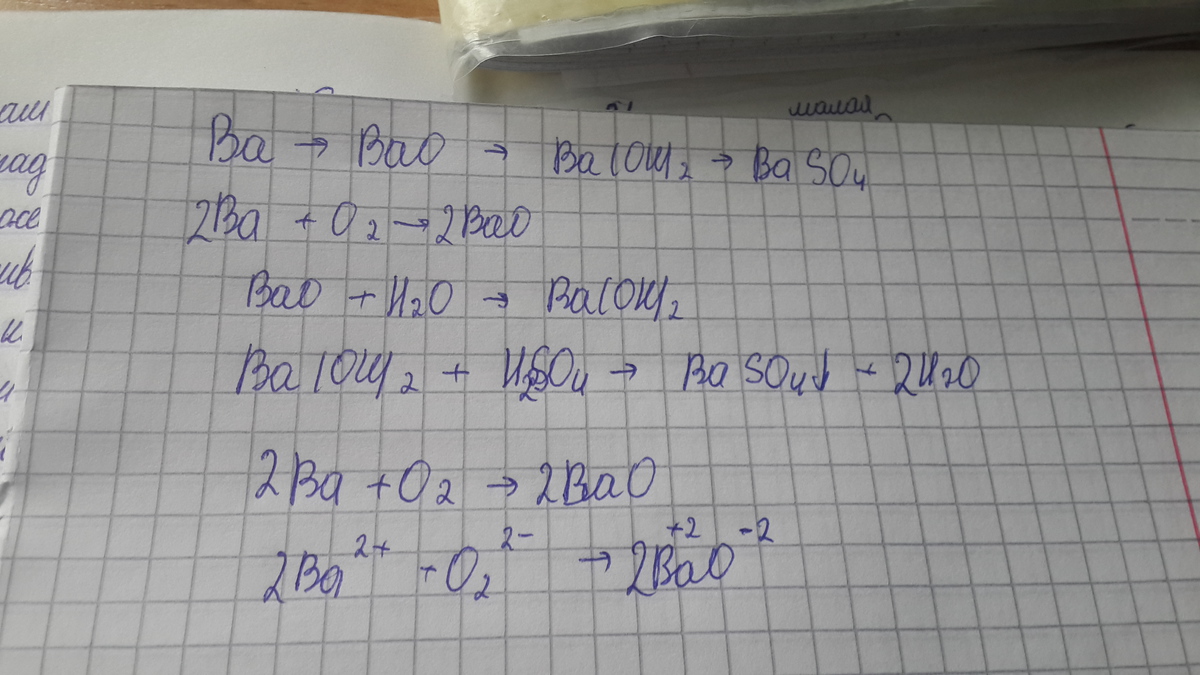 малая
Ba → BaO → Ba(OH)₂ → BaSO₄
2Ba + O₂ → 2BaO
BaO + H₂O → Ba(OH)₂
Ba(OH)₂ + H₂SO₄ → BaSO₄↓ + 2H₂O
2Ba + O₂ → 2BaO
2Ba²⁺ + O₂²⁻ → 2Ba⁺²O⁻²